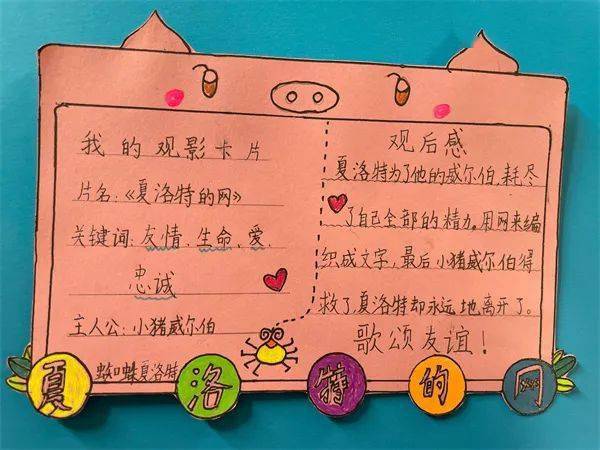 我的观影卡片
片名:《夏洛特的网》
关键词:友情、生命、爱、
忠诚
主人公:小猪威尔伯
蜘蛛夏洛特
观后感
夏洛特为了他的威尔伯,耗尽
了自己全部的精力。用网来编
织成文字,最后小猪威尔伯得
救了夏洛特却永远地离开了。
歌颂友谊!
夏洛特的网